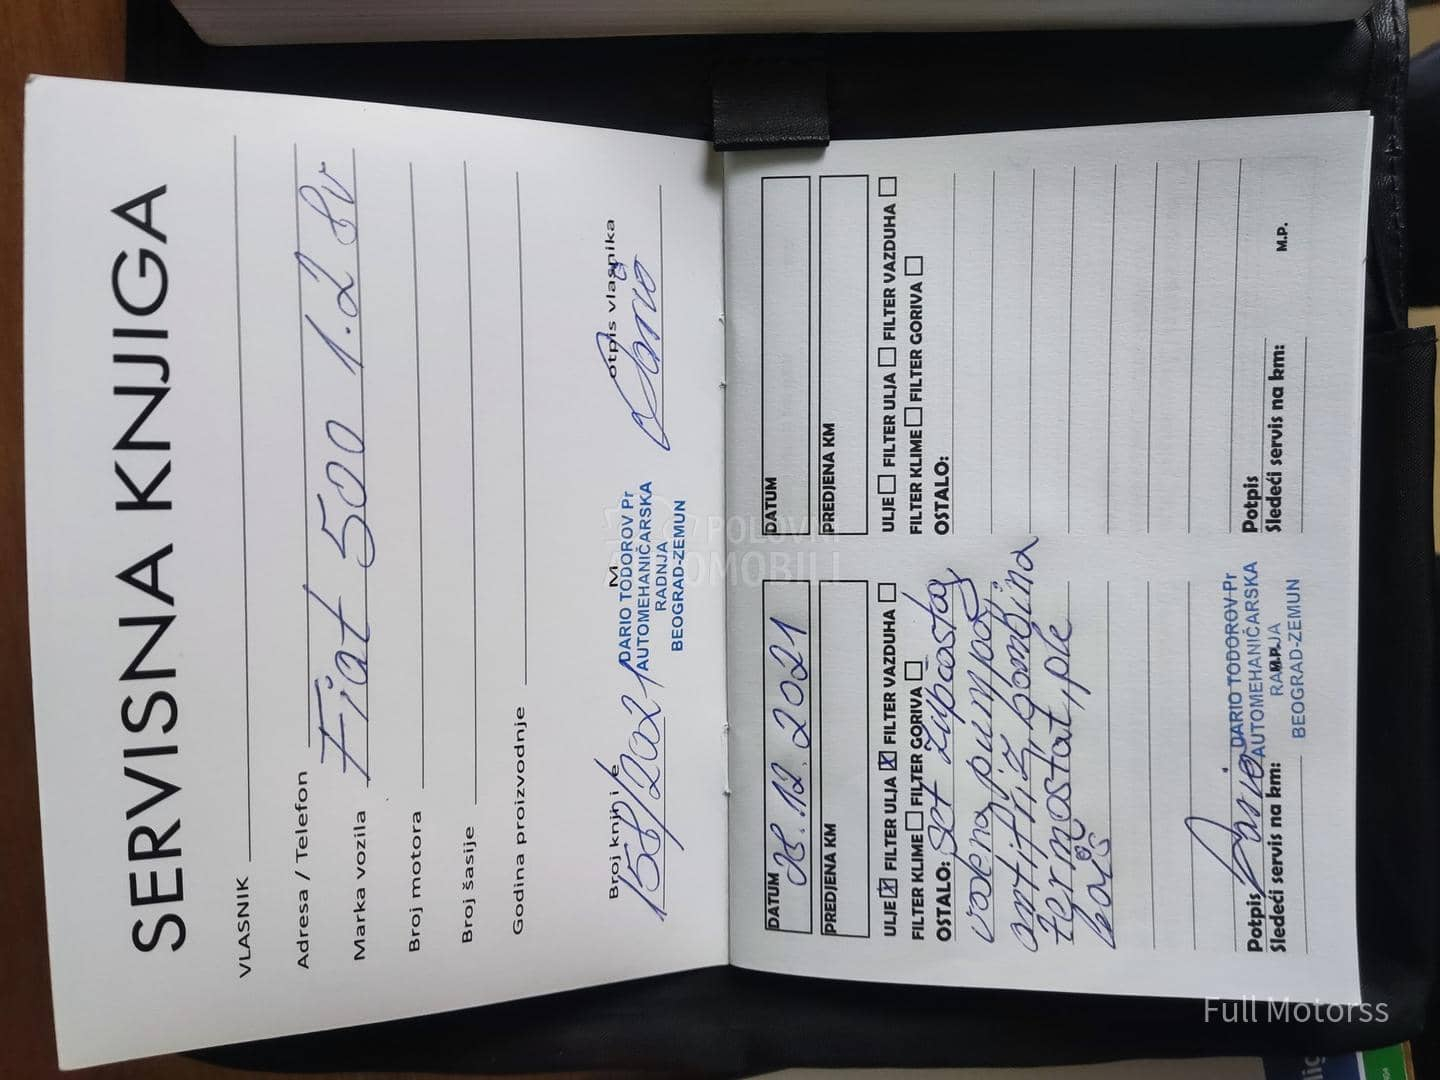 SERVISNA KNJIGA
VLASNIK
Adresa / Telefon
Marka vozila Fiat 500 1.2 8v
Broj motora
Broj šasije
Godina proizvodnje
Broj knjižice
158/2021
DARIO TODOROV Pr
AUTOMEHANIČARSKA
RADNJA
BEOGRAD-ZEMUN
otpis vlasnika
Dario
DATUM 28.12.2021
PREDJENA KM
ULJE x FILTER ULJA x FILTER VAZDUHA
FILTER KLIME FILTER GORIVA
OSTALO: set zupčastog
vodena pumpa
antifriz, bombina
termostat, ple
Potpis Dario
Sledeći servis na km:
M.P.
DARIO TODOROV Pr
AUTOMEHANIČARSKA
RADNJA
BEOGRAD-ZEMUN
DATUM
PREDJENA KM
ULJE FILTER ULJA FILTER VAZDUHA
FILTER KLIME FILTER GORIVA
OSTALO:
Potpis
Sledeći servis na km:
M.P.
POLOVNI
AUTOMOBILI
Full Motorss